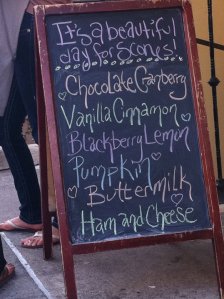 It's a beautiful
day for Scones!
Chocolate Cranberry
Vanilla Cinnamon
Blackberry Lemon
Pumpkin
Buttermilk
Ham and Cheese